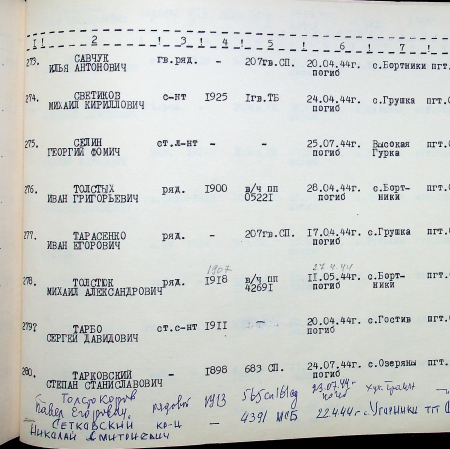 1 ! 2 ! 3 ! 4 ! 5 ! 6 ! 7 !
273. САВЧУК гв.ряд. - 207гв.СП. 20.04.44г. с.Бортники пгт.
ИЛЬЯ АНТОНОВИЧ погиб
274. СВЕТИКОВ с-нт 1925 1гв.ТБ 24.04.44г. с.Грушка пгт.
МИХАИЛ КИРИЛЛОВИЧ погиб
275. СЕЛИН ст.л-нт - - 25.07.44г. Высокая пгт.
ГЕОРГИЙ ФОМИЧ погиб Гурка
276. ТОЛСТЫХ ряд. 1900 в/ч пп 28.04.44г. с.Борт- пгт.
ИВАН ГРИГОРЬЕВИЧ 05221 погиб ники
277. ТАРАСЕНКО ряд. - 207гв.СП. 17.04.44г. с.Грушка пгт.
ИВАН ЕГОРОВИЧ погиб
1907 27.4.44
278. ТОЛСТЮК ряд. 1918 в/ч пп 11.05.44г. с.Борт- пгт.
МИХАИЛ АЛЕКСАНДРОВИЧ 42691 погиб ники
279? ТАРБО ст.с-нт 1911 - 20.04.44г. с.Гостив пгт.
СЕРГЕЙ ДАВИДОВИЧ погиб
280. ТАРКОВСКИЙ - 1898 683 СП. 24.07.44г. с.Озеряны пгт.
СТЕПАН СТАНИСЛАВОВИЧ погиб
Павел Егорович. рядовой 1913 погиб
СЕТКОВСКИЙ - 4391 22.4.44г. с. пгт
НИКОЛАЙ